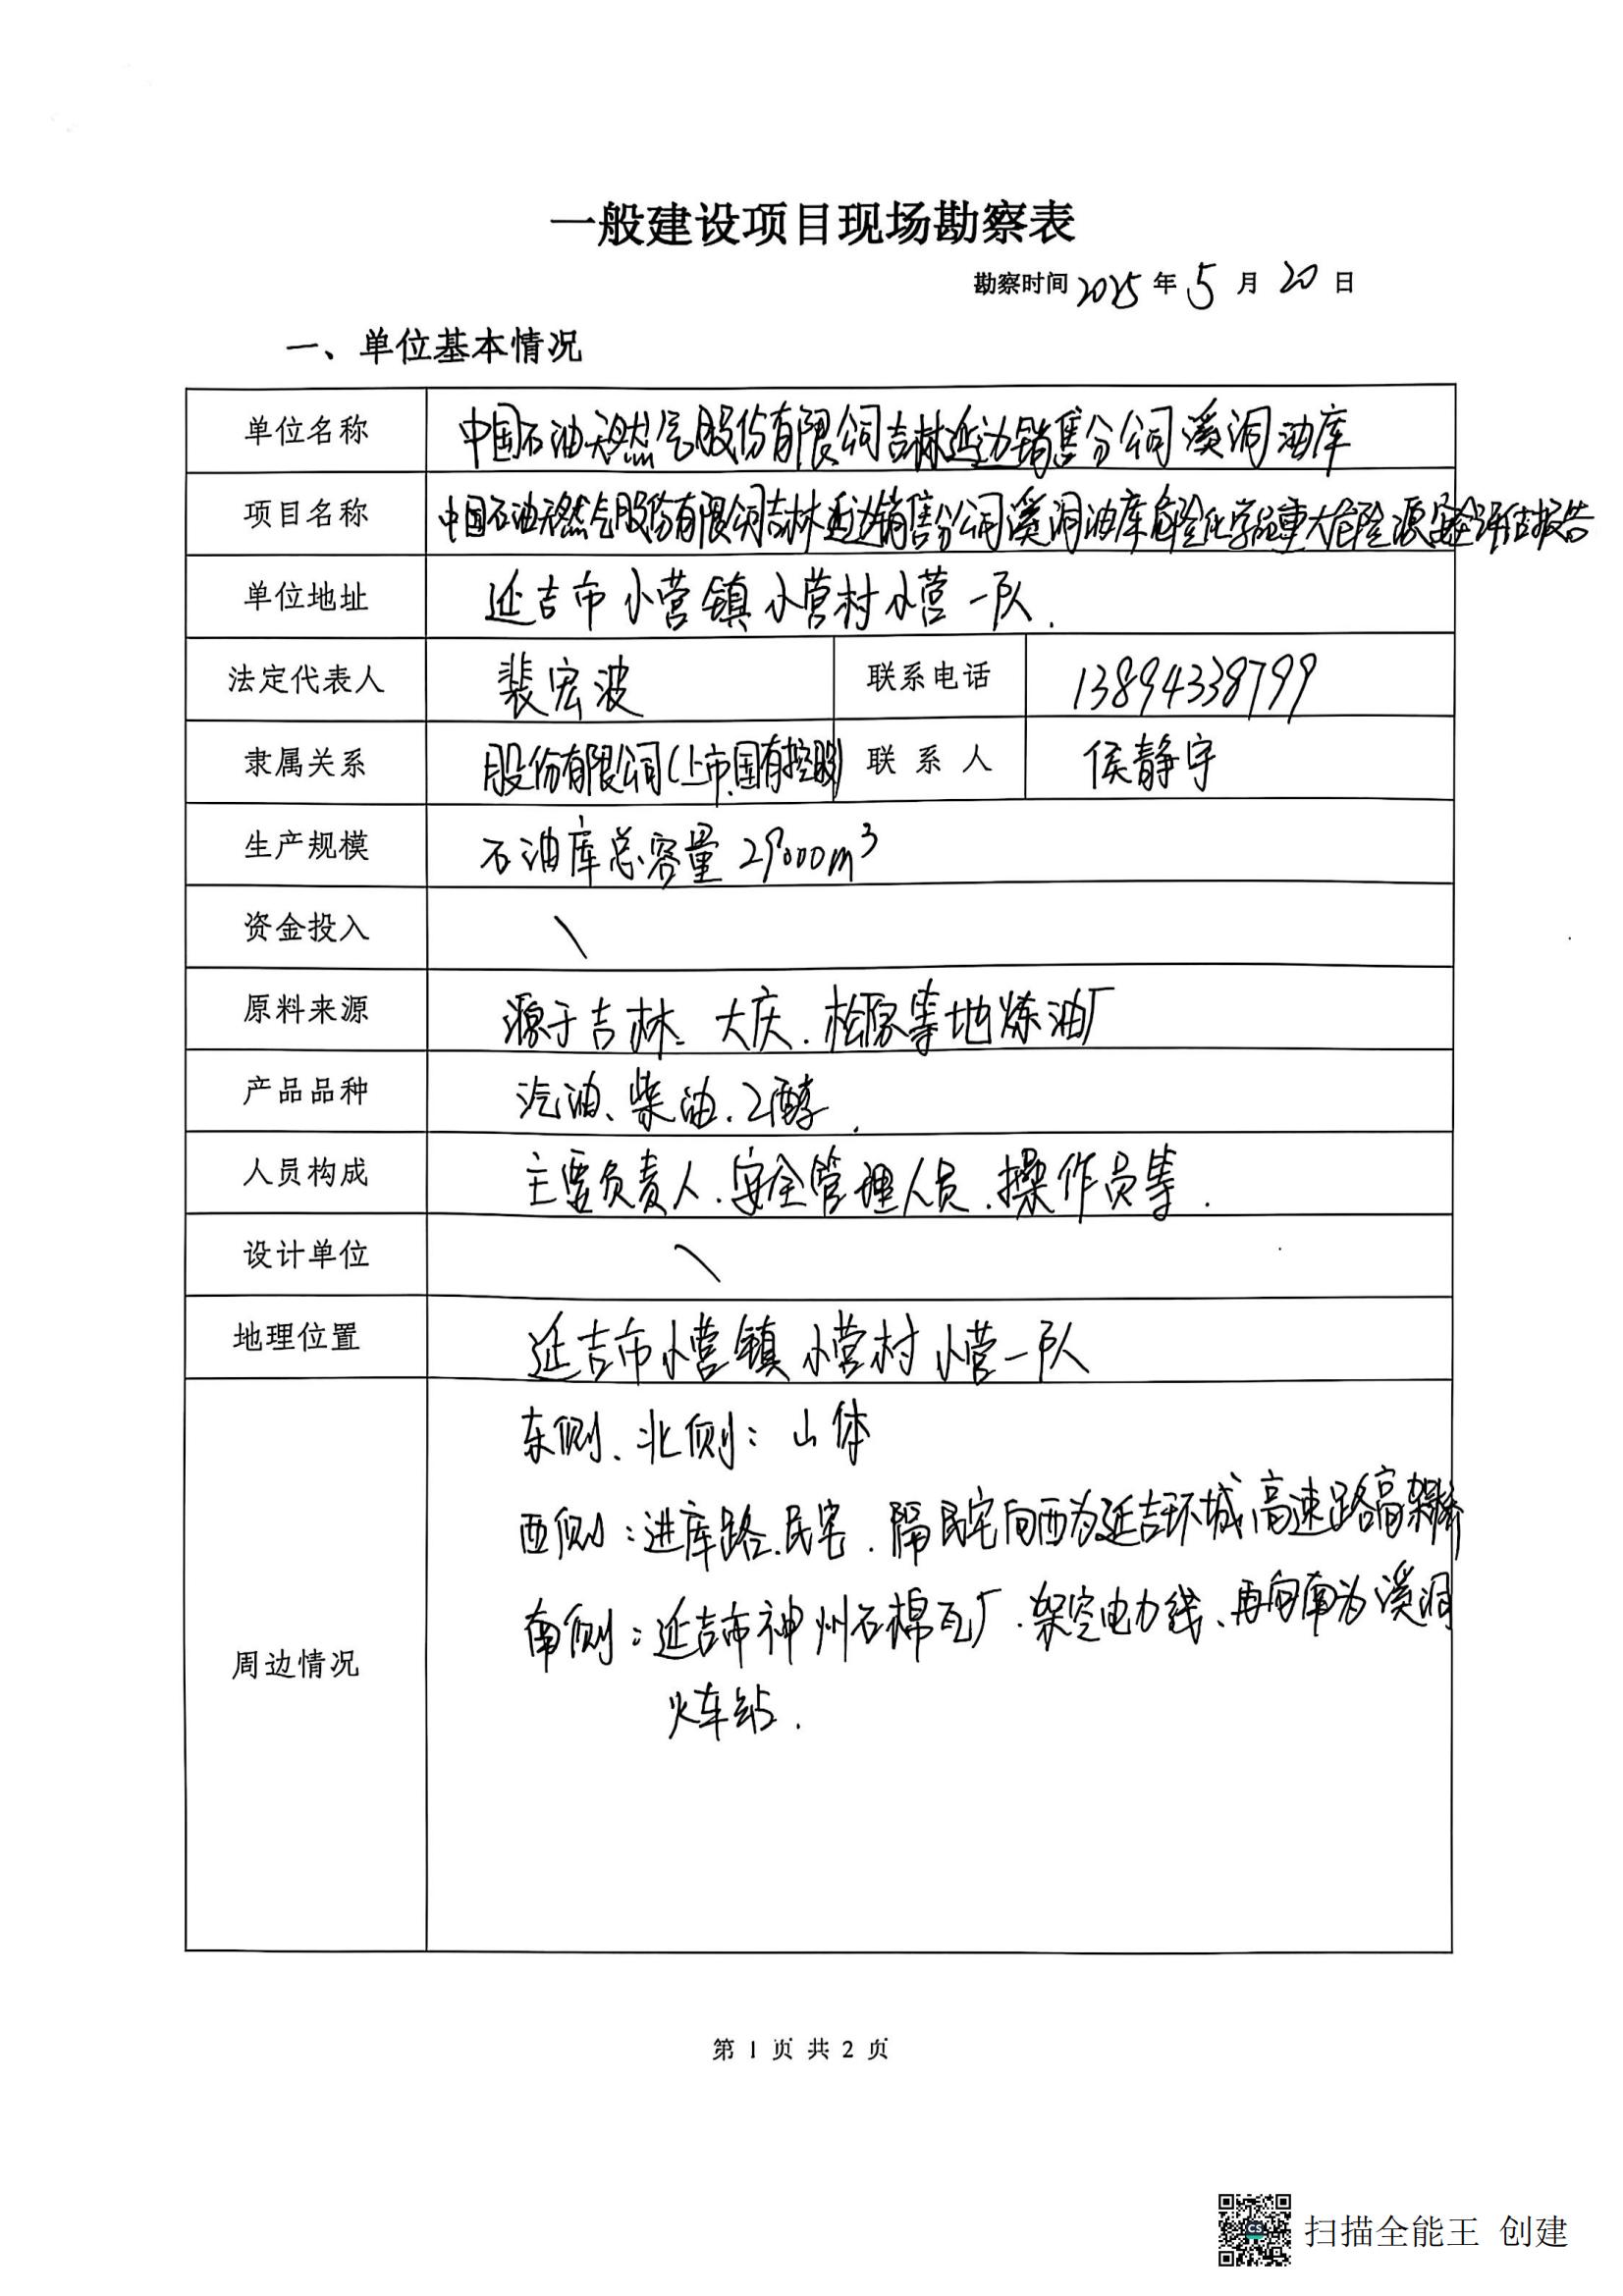 一般建设项目现场勘察表
勘察时间 2025 年 5 月 20 日
一、单位基本情况
单位名称 中国石油天然气股份有限公司吉林延边销售分公司溪洞油库
项目名称 中国石油天然气股份有限公司吉林延边销售分公司溪洞油库危险化学品重大危险源安全评估报告
单位地址 延吉市小营镇小营村小营一队.
法定代表人 裴宏波 联系电话 13894338799
隶属关系 股份有限公司(上市、国有控股) 联系人 侯静宇
生产规模 石油库总容量 29000m³
资金投入 \
原料来源 源于吉林、大庆、松原等地炼油厂
产品品种 汽油、柴油、乙醇.
人员构成 主要负责人、安全管理人员、操作员等.
设计单位 \
地理位置 延吉市小营镇小营村小营一队
东侧、北侧：山体
西侧：进库路、民宅、隔民宅向西为延吉环城高速路高架桥
南侧：延吉市神州石棉瓦厂、架空电力线、再向南为溪洞
周边情况
火车站.
第 1 页 共 2 页
扫描全能王 创建